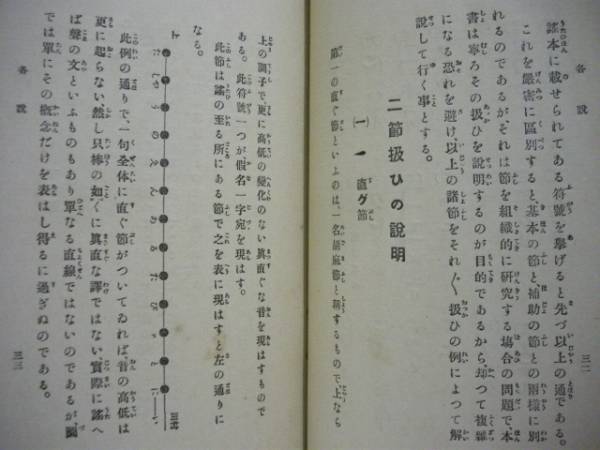 各說
三二
謠本に載せられてある符號を擧げると先づ以上の通である。
これを嚴密に區別すると、基本の節と、補助の節との兩樣に別
れるのであるが、それは節を組織的に硏究する場合の問題で、本
書は寧ろその扱ひを說明するのが目的であるから、却つて複雜
になる恐れを避け、以上の諸節をそれ〲扱ひの例によつて解
說して行く事とする。
二 節扱ひの說明
(一) 直グ節
第一の直ぐ節といふのは、一名胡麻節と稱するもので、上なら
上の調子で、更に高低の變化のない眞直ぐな音を現はすもので
ある。此符號一つが假名一字宛を現はす。
此節は謠の至る所にある節で之を表に現はすと左の通りに
なる。
田村
上
此例の通りで、一句全体に直ぐ節がついてゐれば、音の高低は
更に起らない。然し只棒の如くに眞直な譯ではない、實際に謠へ
ば聲の文といふものもあり單なる直線ではないのであるが圖
では單にその槪念だけを表はし得るに過ぎぬのである。
各說
三三